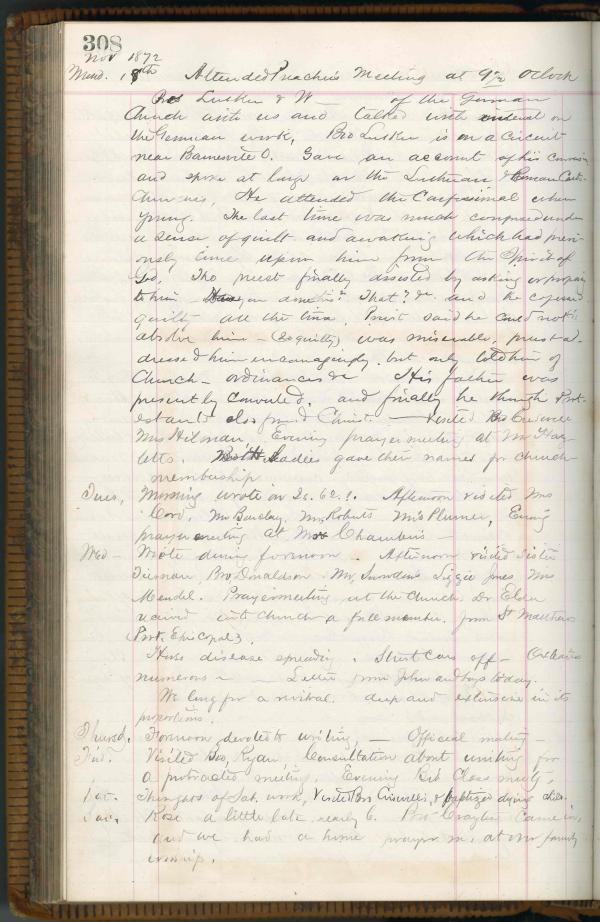 308
Nov 1872
Mond. 18th Attended Preachers Meeting at 9 1/2 Oclock
Bro Lusker & W— of the German
Church with us and talked with on
the German work, Bro Lusker is on a Circuit
near Barnesville O. Gave an account of his
and spoke at large on the Lutheran &
Churches, He attended the Confessional when
young. The last time was much under
a sense of guilt and awaking which had previ-
ously come upon him from the Spirit of
God, The priest finally assisted by asking
to him — Have you done this? That? &c. and he
guilty all the time, Priest said he could not
absolve him — (So guilty) was miserable, priest ad-
dressed him encouragingly. but only told him of
Church — ordinances &c His father was
presently converted, and finally he through Prot-
estants also found Christ. — Visited Bro
Mrs Hilman, Evening prayer meeting at Mr
Ladies gave their names for Church
membership
Tues, Morning wrote on Afternoon visited Mrs
Cord, Mr Barclay, Mrs Roberts Mrs Plumer, Eveng
prayer meeting at Chambers —
Wed — Wrote during forenoon. Afternoon visited Sister
Bro Donaldson Mr, Snowden Lizzie Jones Mrs
Mendel. Prayer meeting at the Church. Dr Elder
received into Church a full member. from St Matthews
(Prot. Episcopal).
Horse disease spreading. Street Cars off —
numerous — Letter from John and boys today.
We long for a revival. deep and extensive in its
proportions.
Thursd. Forenoon devoted to writing, — Official meeting —
Frid. Visited Bro, Ryan, Consultation about uniting for
a protracted meeting. Evening Bib Class meetg.
Sat. Thoughts of Sab. work, Visited Bro & baptized dying child.
Rose a little late, nearly 6. Bro Crayton came in,
and we had a home prayer m, at our family
worship.